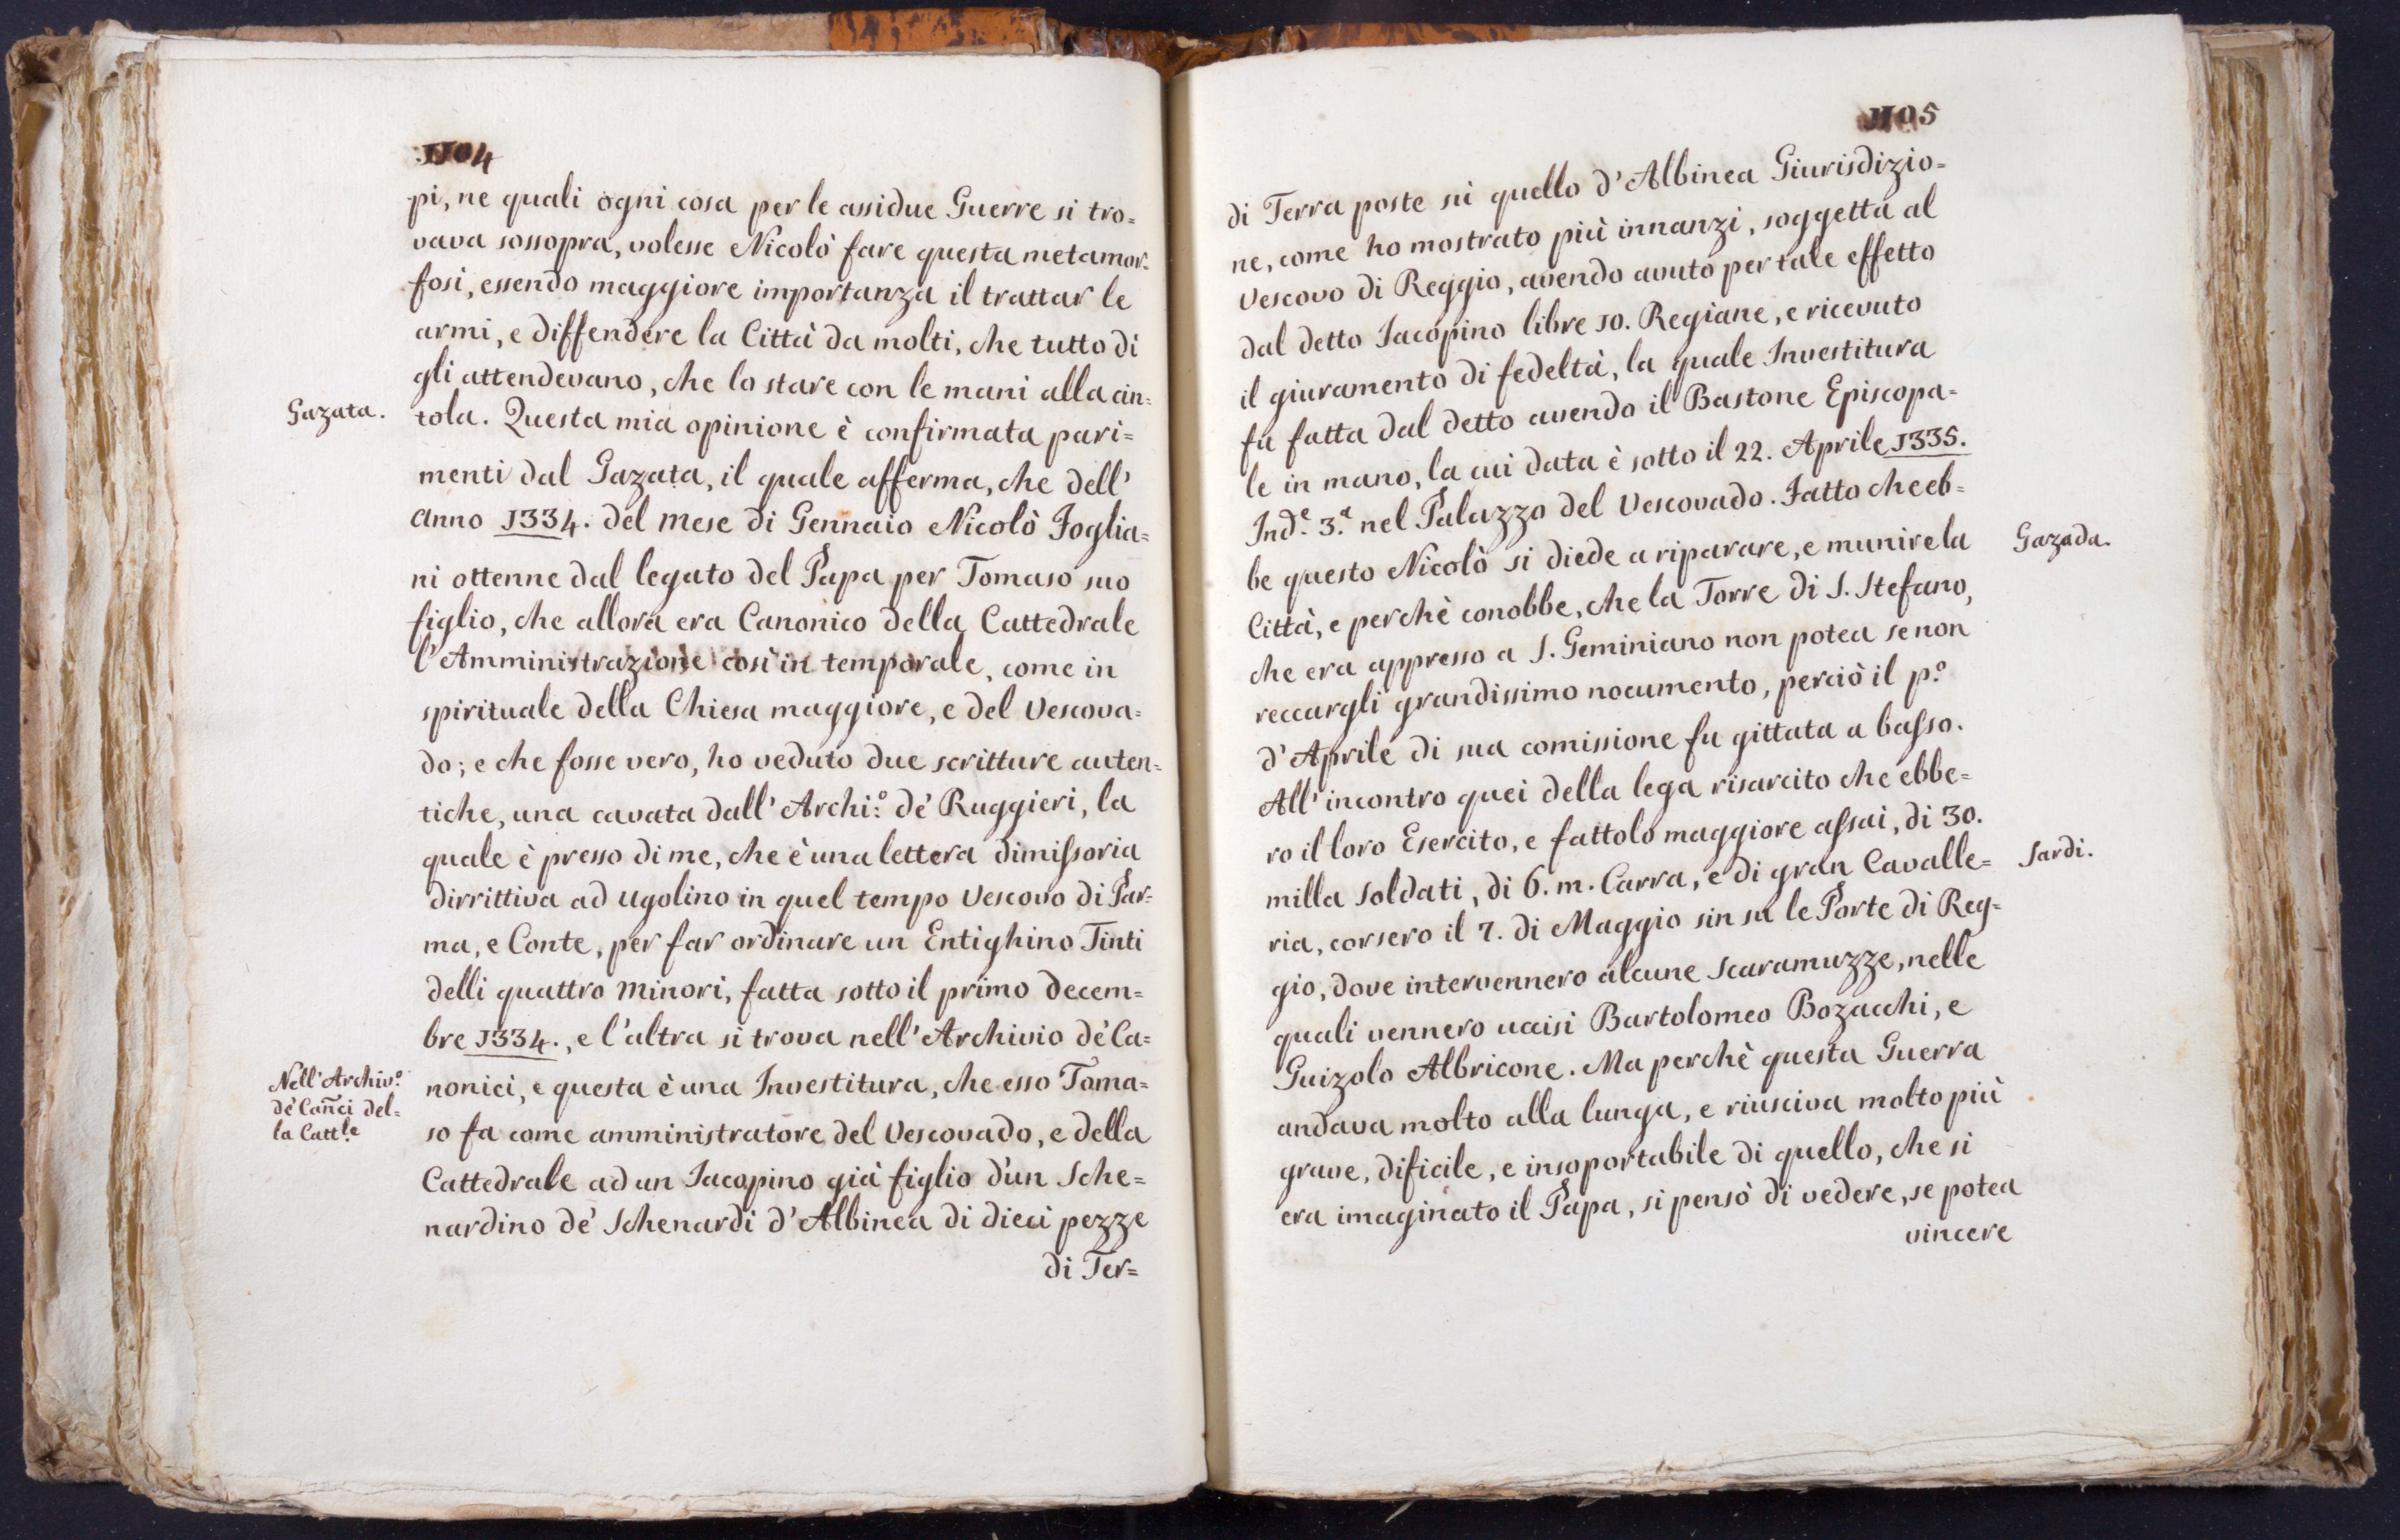 1104
pi, ne quali ogni cosa per le assidue Guerre si tro=
vava sossopra, volesse Nicolò fare questa metamor=
fosi, essendo maggiore importanza il trattar le
armi, e diffendere la Città da molti, che tutto dì
gli attendevano, che lo stare con le mani alla cin=
Gazata.
tola. Questa mia opinione è confirmata pari=
menti dal Gazata, il quale afferma, che dell'
anno 1334. del mese di Gennaio Nicolò Foglia=
ni ottenne dal legato del Papa per Tomaso suo
figlio, che allora era Canonico della Cattedrale
l'Amministrazione così in temporale, come in
spirituale della Chiesa maggiore, e del Vescova=
do; e che fosse vero, ho veduto due scritture auten=
tiche, una cavata dall' Archi:º de' Ruggieri, la
quale è presso di me, che è una lettera dimissoria
dirrittiva ad Ugolino in quel tempo Vescovo di Par=
ma, e Conte, per far ordinare un Entighino Tinti
delli quattro minori, fatta sotto il primo decem=
bre 1334., e l'altra si trova nell' Archivio de' Ca=
Nell' Archiv.º
de' Can̄ci del=
la Catt.le
nonici, e questa è una Investitura, che esso Toma=
so fa come amministratore del Vescovado, e della
Cattedrale ad un Iacopino già figlio d'un Sche=
nardino de' Schenardi d'Albinea di dieci pezze
di Ter=
1105
di Terra poste sù quello d'Albinea Giurisdizio=
ne, come ho mostrato più innanzi, soggetta al
Vescovo di Reggio, avendo avuto per tale effetto
dal detto Iacopino libre 10. Regiane, e ricevuto
il giuramento di fedeltà, la quale Investitura
fu fatta dal detto avendo il Bastone Episcopa=
le in mano, la cui data è sotto il 22. Aprile 1335.
Ind.e 3.a nel Palazzo del Vescovado. Fatto che eb=
Gazada.
be questo Nicolò si diede a riparare, e munire la
Città, e perchè conobbe, che la Torre di S. Stefano,
che era appresso a S. Geminiano non potea se non
reccargli grandissimo nocumento, perciò il p.º
d'Aprile di sua comissione fu gittata a basso.
All' incontro quei della lega risarcito che ebbe=
ro il loro Esercito, e fattolo maggiore assai, di 30.
Sardi.
milla soldati, di 6. m. Carra, e di gran Cavalle=
ria, corsero il 7. di Maggio sin su le Porte di Reg=
gio, dove intervennero alcune scaramuzze, nelle
quali vennero uccisi Bartolomeo Bozacchi, e
Guizolo Albricone. Ma perchè questa Guerra
andava molto alla lunga, e riusciva molto più
grave, dificile, e insoportabile di quello, che si
era imaginato il Papa, si pensò di vedere, se potea
vincere